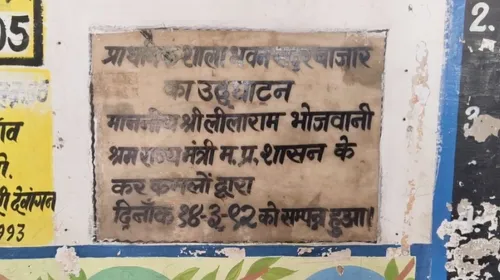 05
प्राथमिक शाला भवन सदर बाजार
का उद्घाटन
माननीय श्री लीलाराम भोजवानी
श्रम राज्य मंत्री म.प्र. शासन के
कर कमलों द्वारा
दिनाँक १४-३-९२ को सम्पन्न हुआ।
देवांगन
993
2.